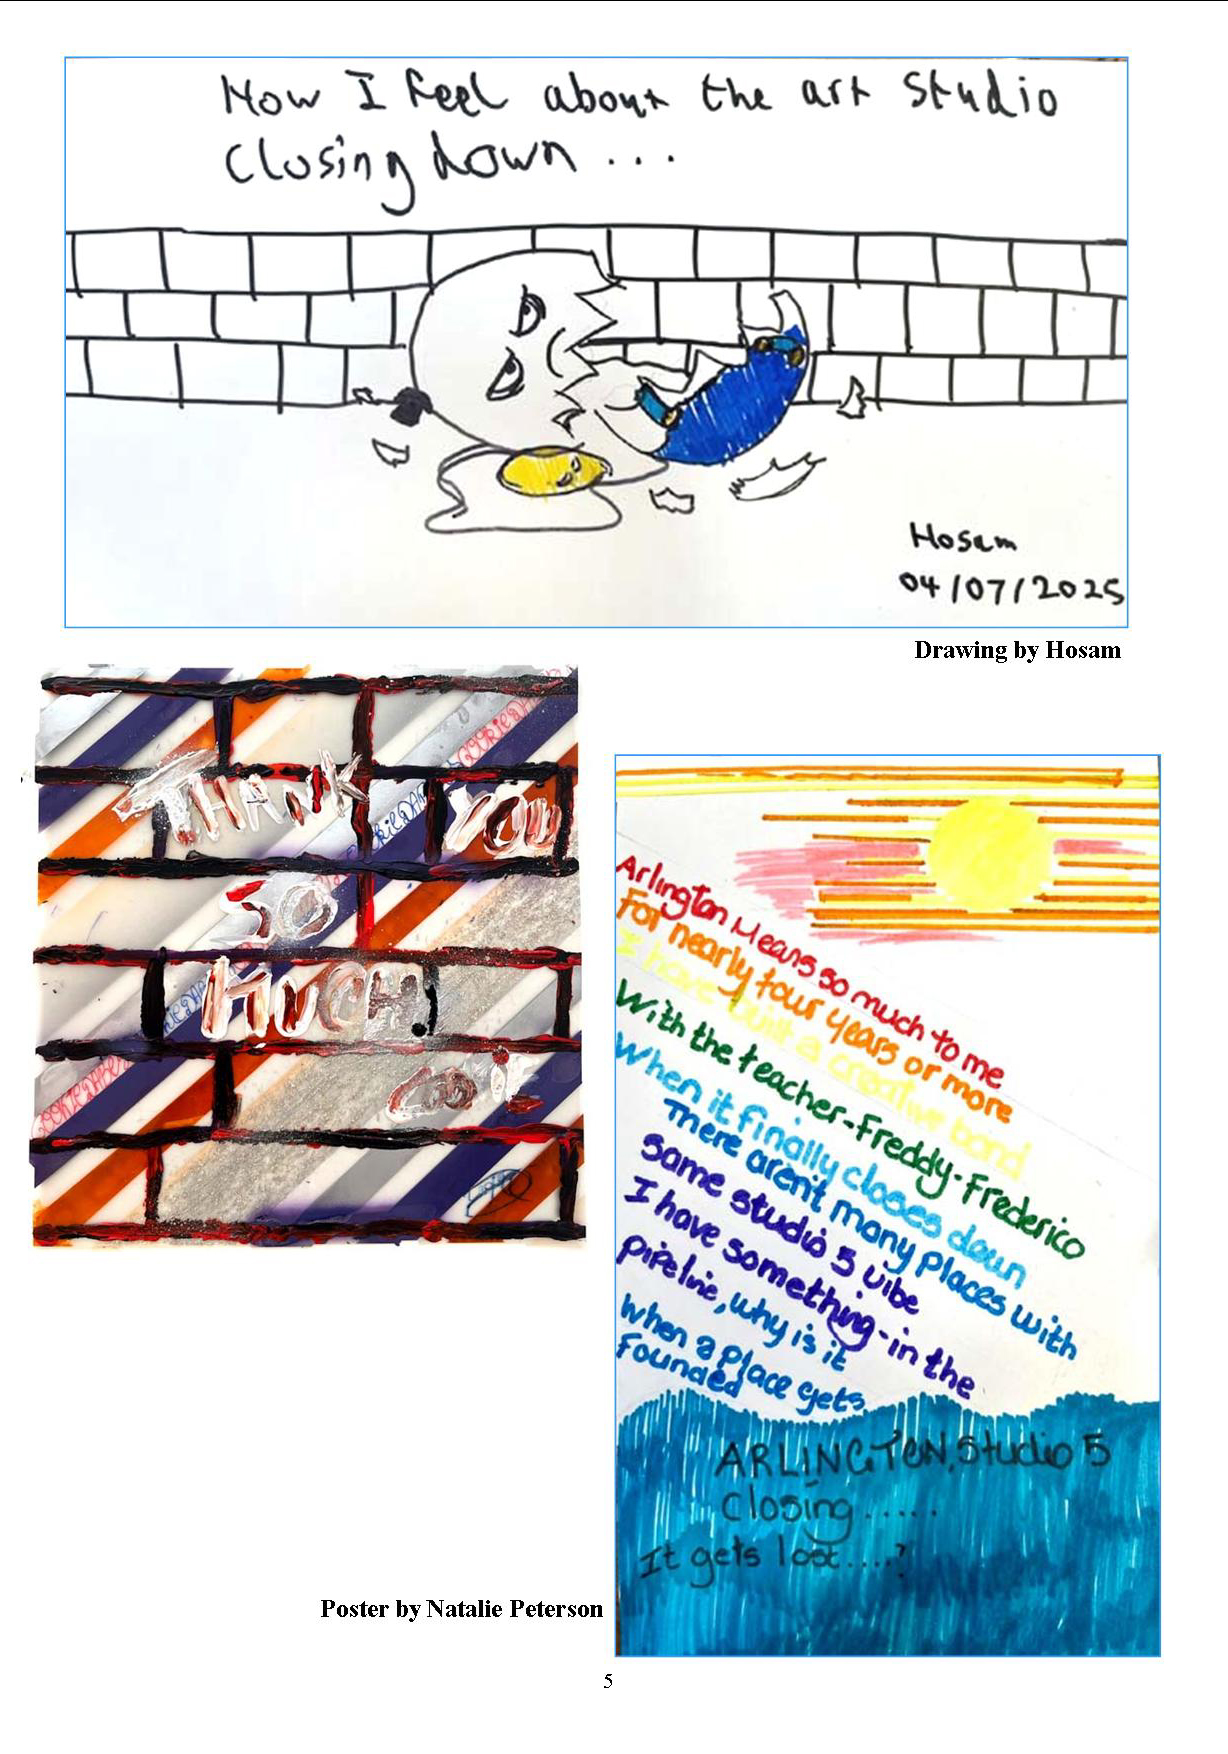 How I feel about the art studio
closing down ...
Hosam
04/07/2025
Drawing by Hosam
THANK YOU
SO
MUCH!
Arlington Means so much to me
For nearly four years or more
I have built a creative bond
With the teacher-Freddy-Frederico
When it finally closes down
There aren't many places with
same studio 5 vibe
I have something-in the
pipeline, why is it
when a place gets
founded
ARLINGTON, Studio 5
Closing.....
It gets lost....?
Poster by Natalie Peterson
5